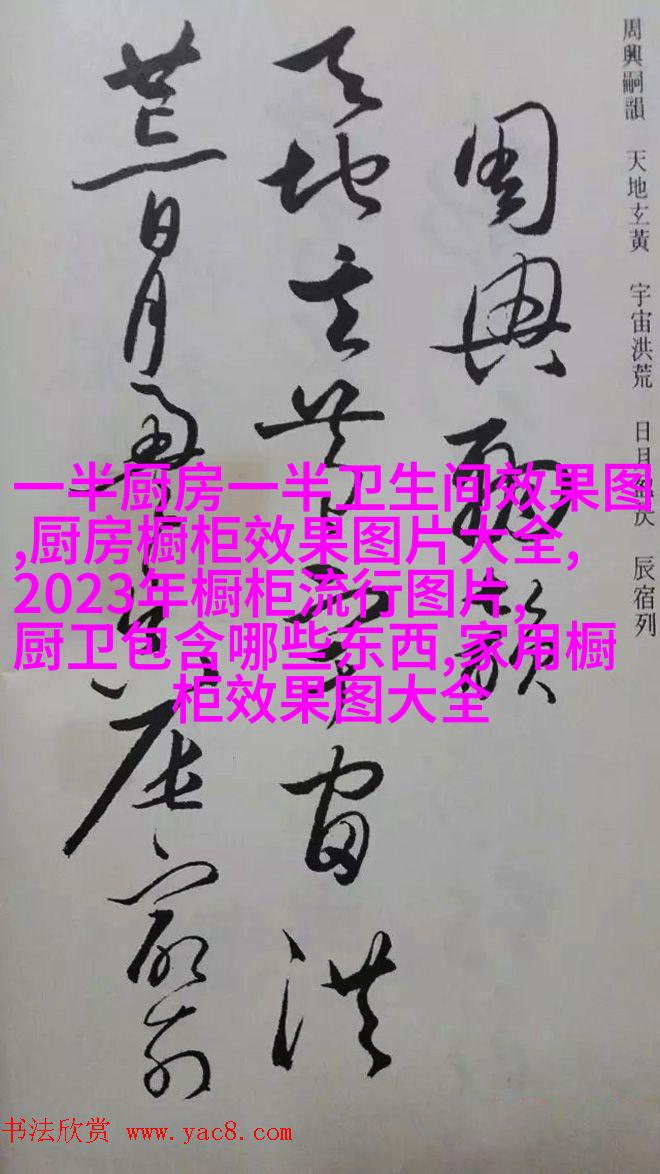 周興嗣韻 天地玄黃 宇宙洪荒 日月盈昃 辰宿列
周興嗣韻
天地玄黃宇宙洪
荒日月盈昃辰宿列
一半厨房一半卫生间效果图
,厨房橱柜效果图片大全,
2023年橱柜流行图片,
厨卫包含哪些东西,家用橱
柜效果图大全
书法欣赏 www.yac8.com